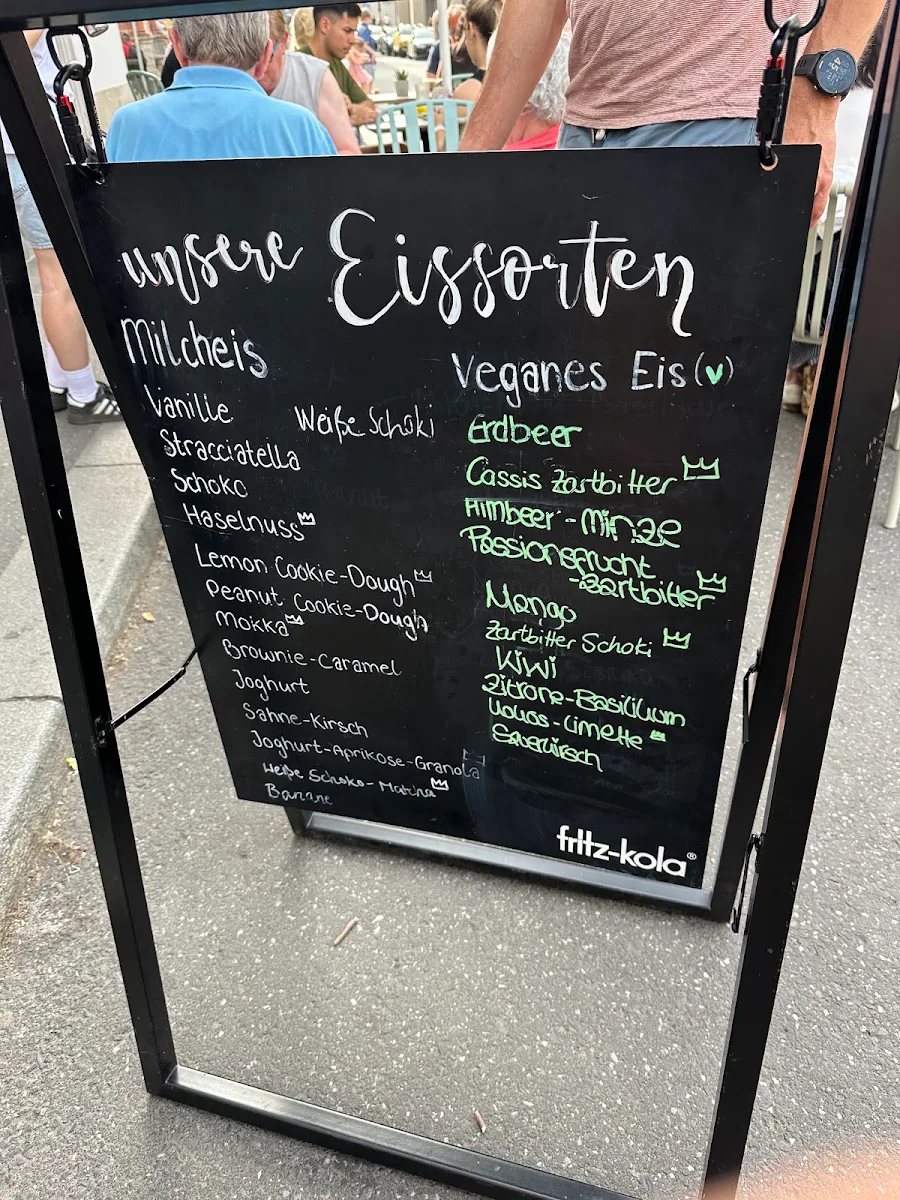 unsere Eissorten
Milcheis
Vanille
Weiße Schoki
Stracciatella
Schoko
Haselnuss
Lemon Cookie-Dough
Peanut Cookie-Dough
Mokka
Brownie-Caramel
Joghurt
Sahne-Kirsch
Joghurt-Aprikose-Granola
Weiße Schoko-Matcha
Banane
Veganes Eis (v)
Erdbeer
Cassis Zartbitter
Himbeer-Minze
Passionsfrucht
-Zartbitter
Mango
Zartbitter Schoki
Kiwi
Zitrone-Basilikum
-Limette
Sauerkirsch
fritz-kola®